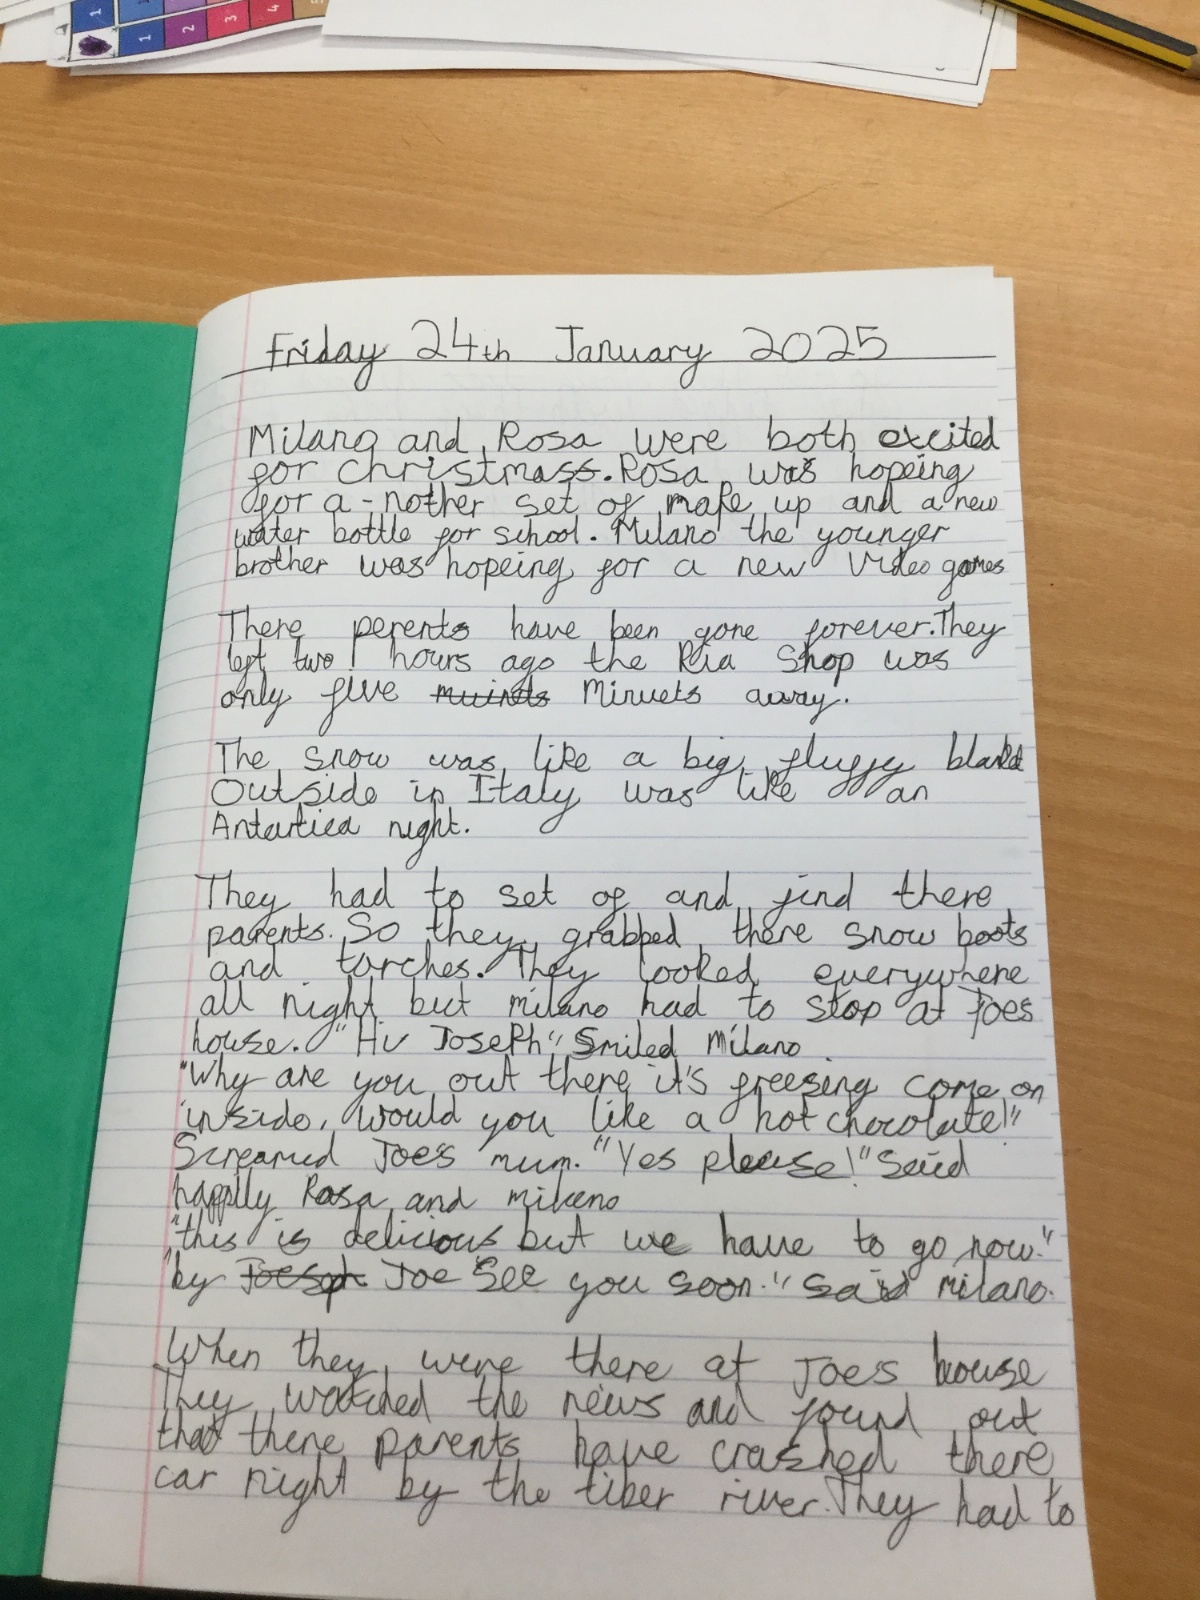 1
1
2
3
4
5
Friday 24th January 2025
Milano and Rosa were both excited
for christmass. Rosa was hopeing
for a-nother set of make up and a new
water bottle for school. Milano the younger
brother was hopeing for a new Video games
There perents have been gone forever. They
left two hours ago the Ria Shop was
only five muinds Minuets away.
The snow was like a big fluffy blanket
Outside in Italy was like an
Antartica night.
They had to set of and find there
parents. So they grabbed there snow boots
and torches. They looked everywhere
all night but milano had to stop at Joes
house. "Hi Joseph" Smiled Milano
"Why are you out there it's freesing come on
inside, would you like a hot chocolate!"
Screamed Joes mum. "Yes please!" Said
happily Rosa and milano
"this is delicious but we have to go now."
"by Joesph Joe See you soon." said milano.
When they were there at Joes house
They watched the news and found out
that there parents have crashed there
car night by the tiber river. They had to